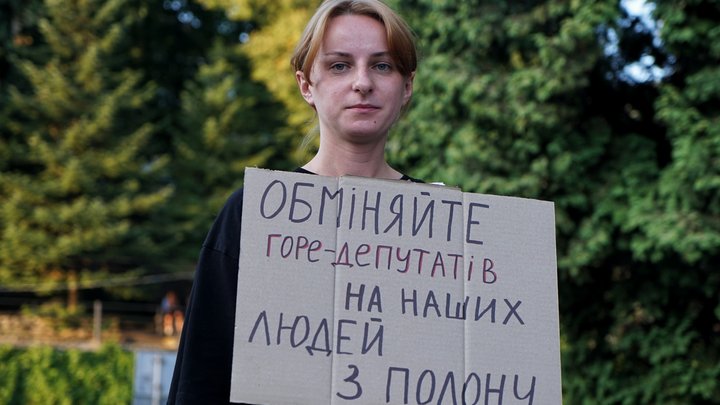 ОБМІНЯЙТЕ
ГОРЕ-ДЕПУТАТІВ
НА НАШИХ
ЛЮДЕЙ
З ПОЛОНУ